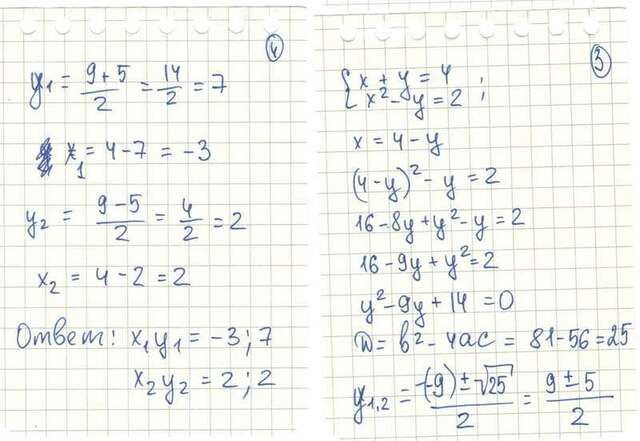 4
y₁ = (9+5)/2 = 14/2 = 7
x₁ = 4-7 = -3
y₂ = (9-5)/2 = 4/2 = 2
x₂ = 4-2 = 2
Ответ: x₁y₁ = -3; 7
x₂y₂ = 2; 2
3
{ x + y = 4
x² - y = 2 ;
x = 4-y
(4-y)² - y = 2
16-8y+y²-y = 2
16-9y+y² = 2
y²-9y+14 = 0
D = b²-4ac = 81-56 = 25
y₁,₂ = (-(-9) ± √25)/2 = (9±5)/2